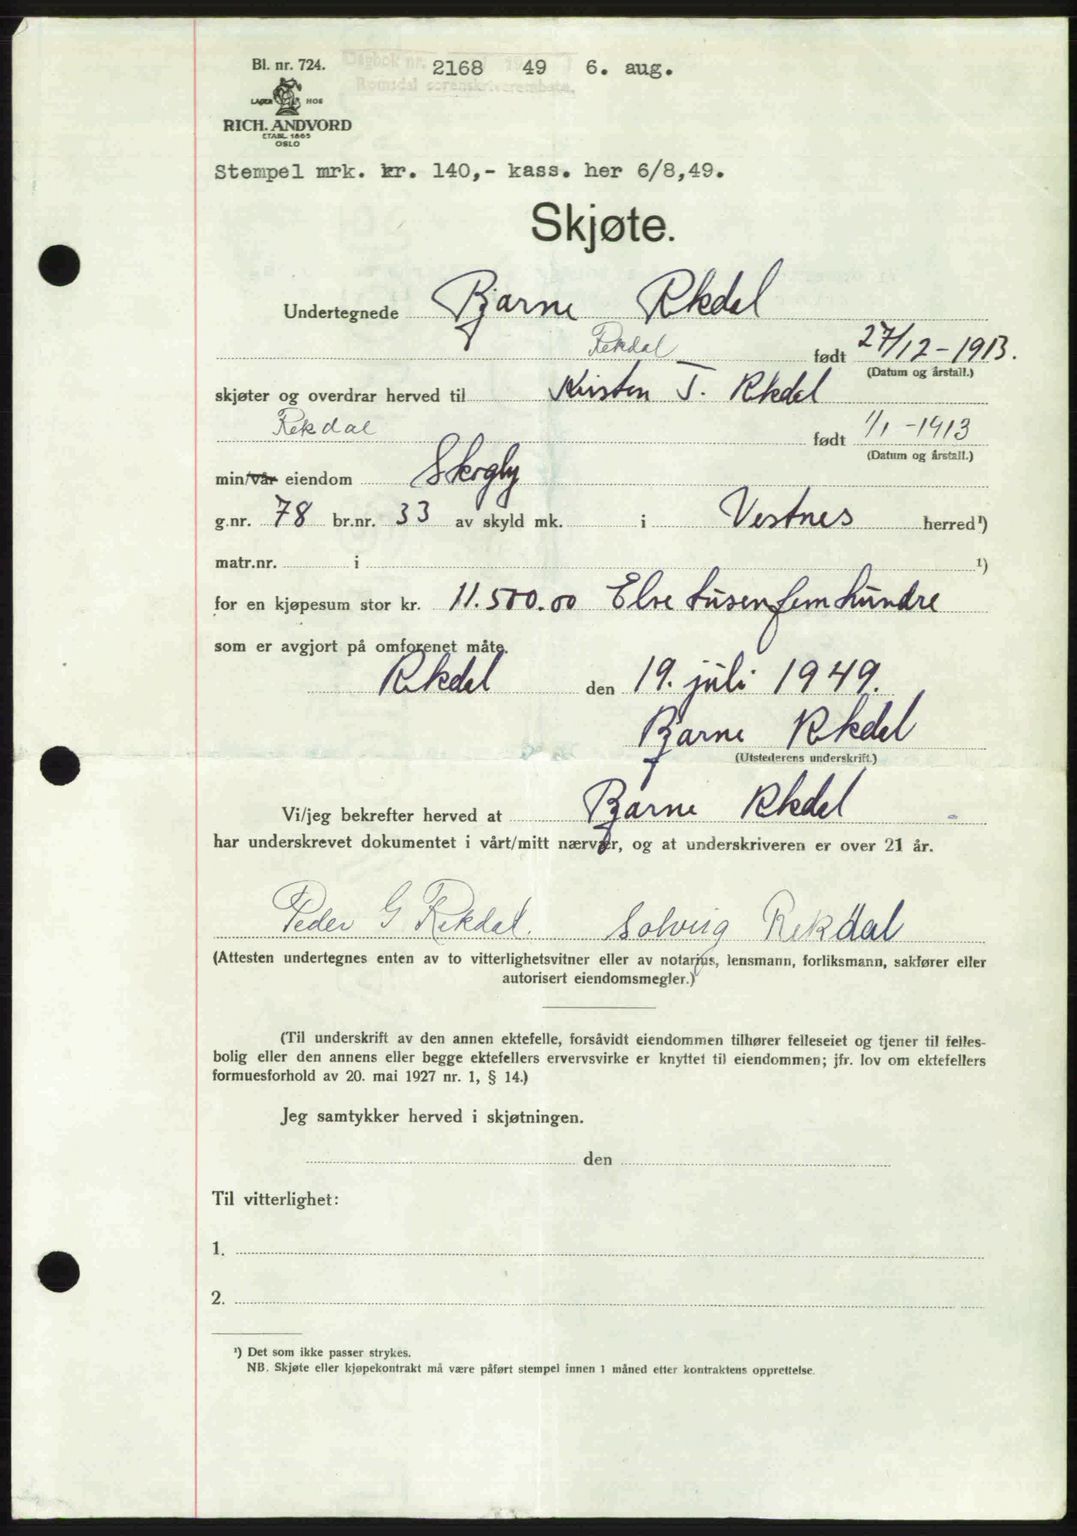 Bl. nr. 724.
Dagbok nr. 2168 19 49 6. aug.
Romsdal sorenskriverembete.
LAGER HOS
RICH. ANDVORD
ETABL. 1865
OSLO
Stempel mrk. kr. 140,- kass. her 6/8,49.
Skjøte.
Undertegnede Bjarne Rekdal
Rekdal født 27/12-1913.
(Datum og årstall.)
skjøter og overdrar herved til Kirsten T. Rekdal
Rekdal født 1/1-1913
(Datum og årstall.)
min/vår eiendom Skogly
g.nr. 78 br.nr. 33 av skyld mk. i Vestnes herred¹)
matr.nr. i ¹)
for en kjøpesum stor kr. 11.500.00 Elve tusen fem hundre
som er avgjort på omforenet måte.
Rekdal den 19. juli 1949.
Bjarne Rekdal
(Utstederens underskrift.)
Vi/jeg bekrefter herved at Bjarne Rekdal
har underskrevet dokumentet i vårt/mitt nærvær, og at underskriveren er over 21 år.
Peder G Rekdal. Solveig Rekdal
(Attesten undertegnes enten av to vitterlighetsvitner eller av notarius, lensmann, forliksmann, sakfører eller
autorisert eiendomsmegler.)
(Til underskrift av den annen ektefelle, forsåvidt eiendommen tilhører felleseiet og tjener til felles-
bolig eller den annens eller begge ektefellers ervervsvirke er knyttet til eiendommen; jfr. lov om ektefellers
formuesforhold av 20. mai 1927 nr. 1, § 14.)
Jeg samtykker herved i skjøtningen.
den
Til vitterlighet:
1.
2.
¹) Det som ikke passer strykes.
NB. Skjøte eller kjøpekontrakt må være påført stempel innen 1 måned etter kontraktens opprettelse.